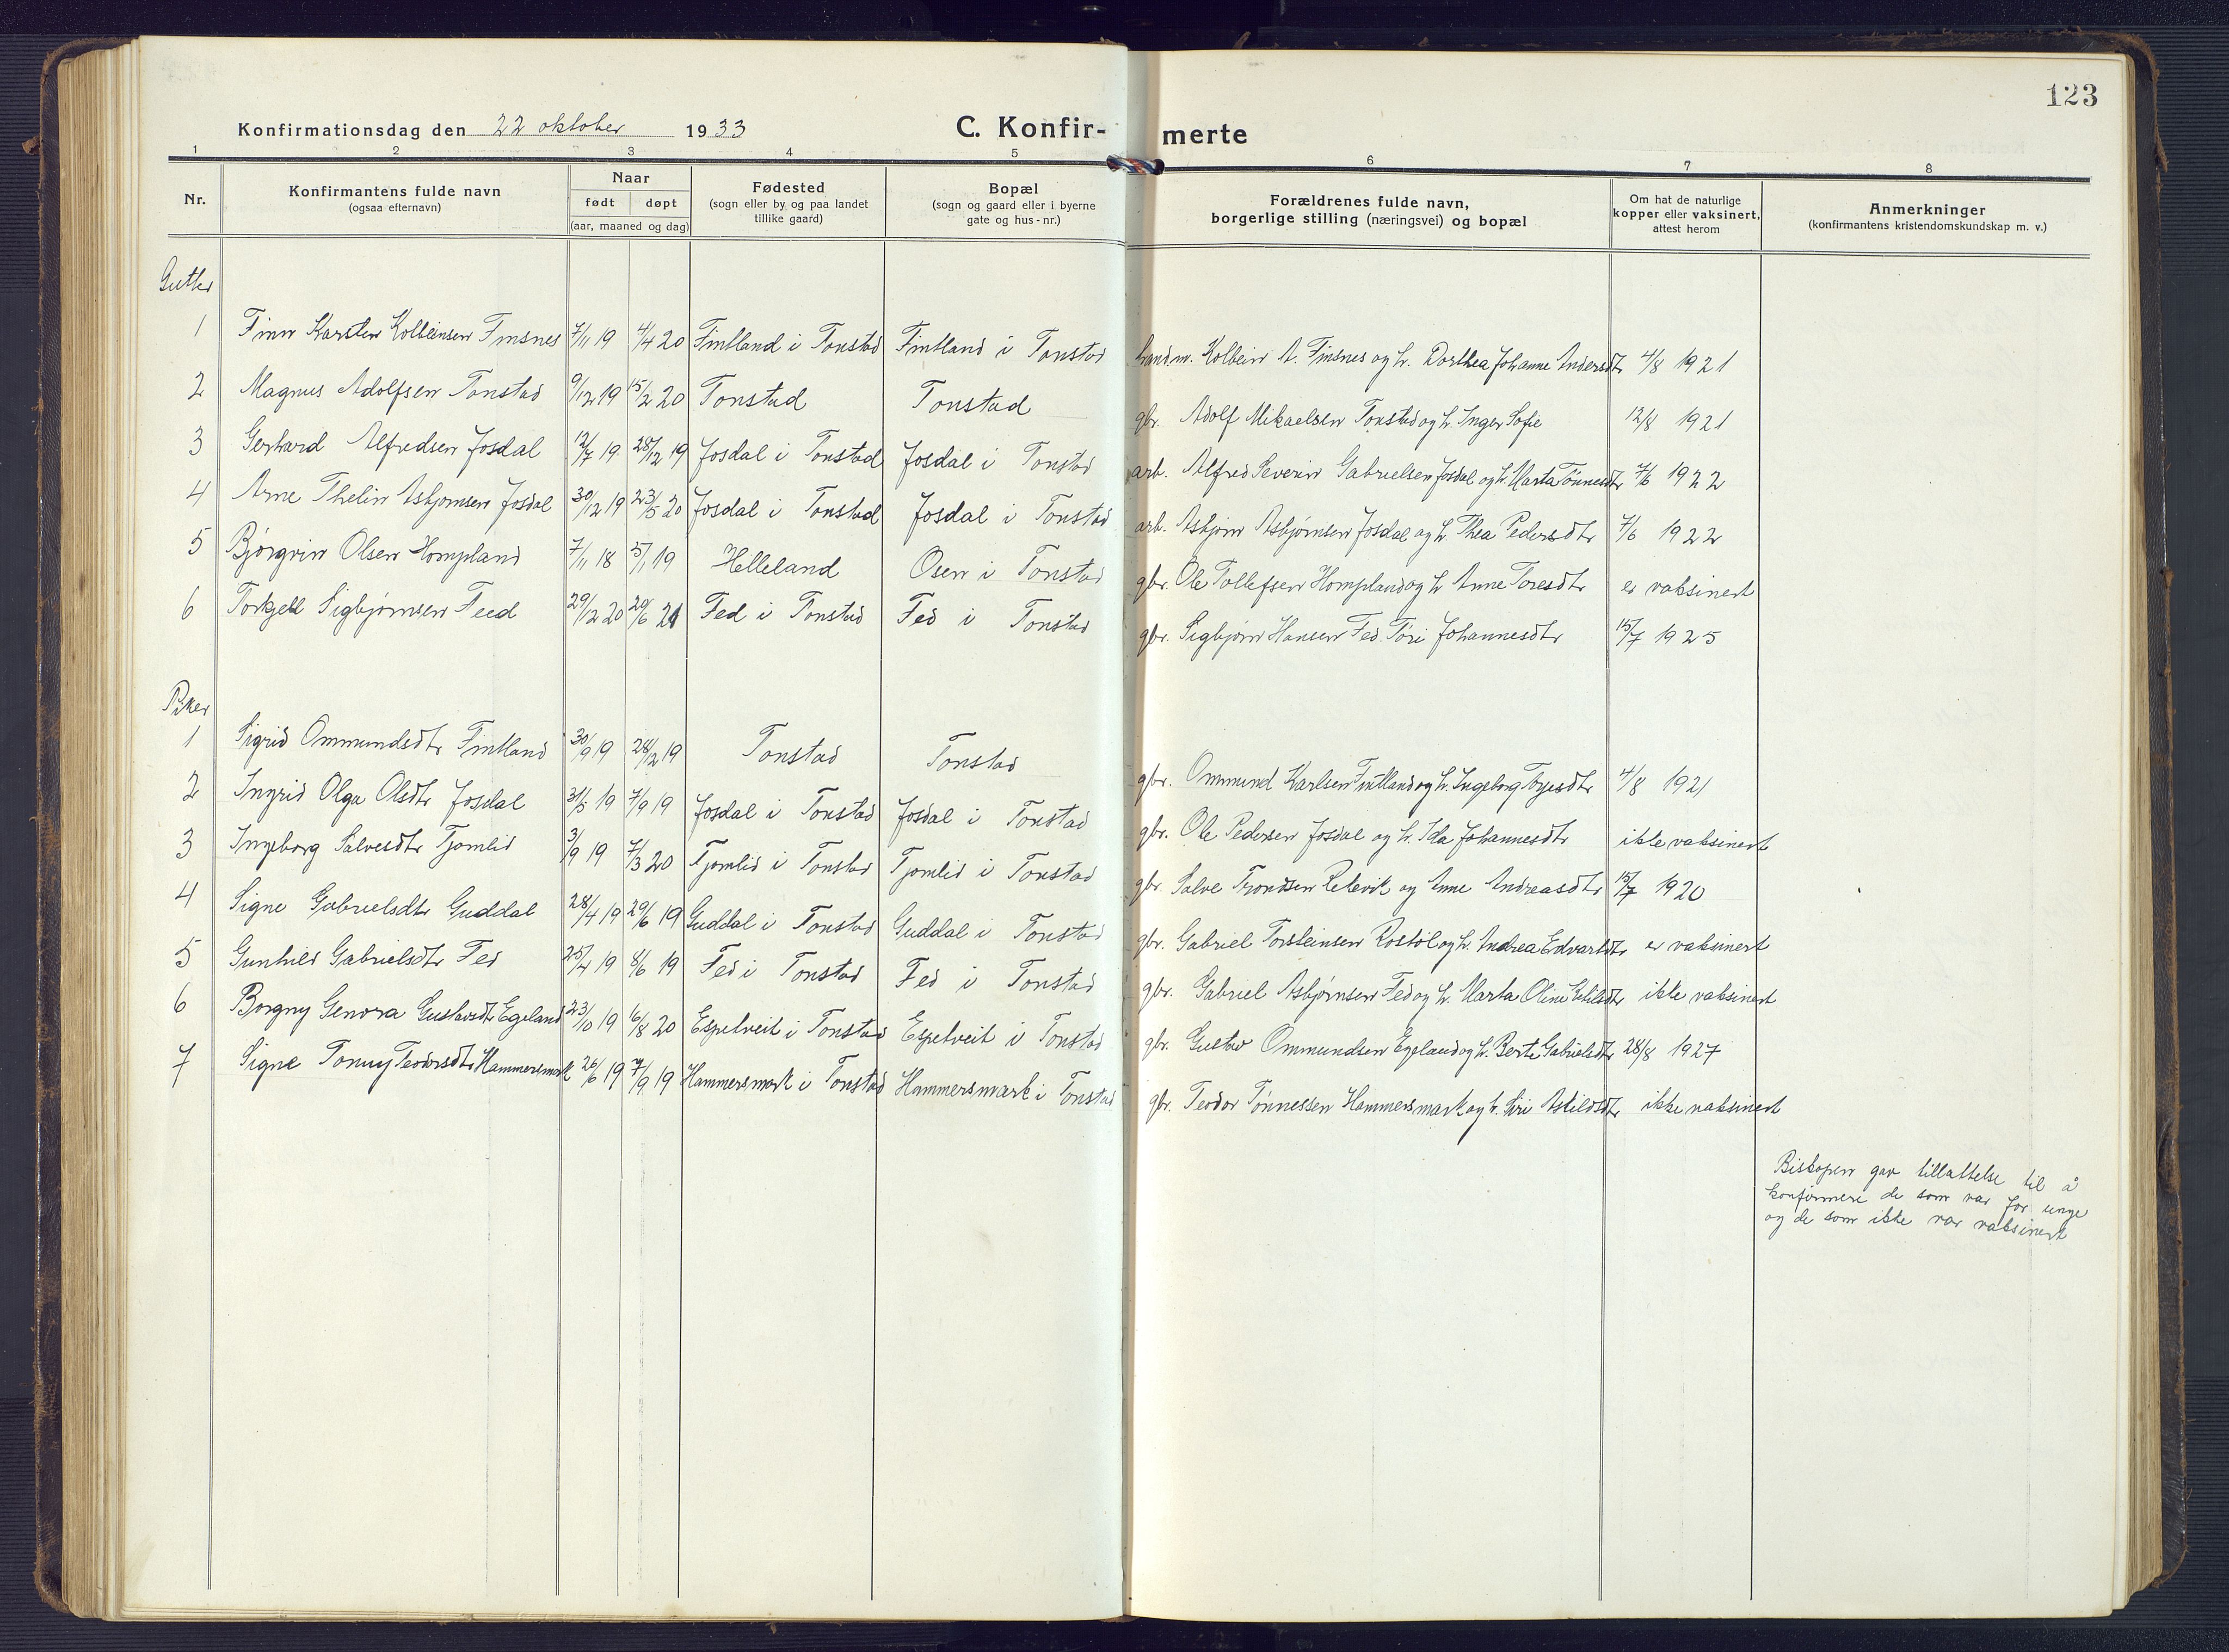 123
Konfirmationsdag den 22 oktober 1933 C. Konfir- merte
1 2 3 4 5 6 7 8
Nr. Konfirmantens fulde navn (ogsaa efternavn) Naar født døpt (aar, maaned og dag) Fødested (sogn eller by og paa landet tillike gaard) Bopæl (sogn og gaard eller i byerne gate og hus-nr.) Forældrenes fulde navn, borgerlige stilling (næringsvei) og bopæl Om hat de naturlige kopper eller vaksinert, attest herom Anmerkninger (konfirmantens kristendomskundskap m. v.)
Gutter
1 Finn Karsten Kolbeinsen Finsnes 7/11 19 4/4 20 Fintland i Tonstad Fintland i Tonstad landm. Kolbein A. Finsnes og h. Dorthea Johanne Andersdtr 4/8 1921
2 Magnus Adolfsen Tonstad 9/12 19 15/2 20 Tonstad Tonstad gbr. Adolf Mikaelsen Tonstad og h. Inger Sofie 12/8 1921
3 Gerhard Alfredsen Josdal 12/7 19 28/12 19 Josdal i Tonstad Josdal i Tonstad arb. Alfred Severin Gabrielsen Josdal og h. Marta Tønnesdtr 7/6 1922
4 Arne Thelin Asbjørnsen Josdal 30/12 19 23/5 20 Josdal i Tonstad Josdal i Tonstad arb. Asbjørn Asbjørnsen Josdal og h. Thea Pedersdtr 7/6 1922
5 Bjørgvin Olsen Hompland 7/11 18 5/1 19 Helleland Osen i Tonstad gbr. Ole Tollefsen Hompland og h Anne Toresdtr er vaksinert
6 Torkjell Sigbjørnsen Feed 29/12 20 29/6 21 Fed i Tonstad Fed i Tonstad gbr. Sigbjørn Hansen Fed. Tøri Johannesdtr 15/7 1925
Piker
1 Sigrid Ommundsdtr Fintland 30/9 19 28/12 19 Tonstad Tonstad gbr. Ommund Karlsen Fintland og h. Ingeborg Torjesdtr 4/8 1921
2 Ingrid Olga Olsdtr Josdal 31/5 19 7/9 19 Josdal i Tonstad Josdal i Tonstad gbr. Ole Pedersen Josdal og h. Ida Johannesdtr ikke vaksinert
3 Ingeborg Salvesdtr Tjomlid 3/9 19 7/3 20 Tjomlid i Tonstad Tjomlid i Tonstad gbr. Salve Trondsen Relevik og Anne Andreasdtr 15/7 1920
4 Signe Gabrielsdtr Guddal 28/4 19 29/6 19 Guddal i Tonstad Guddal i Tonstad gbr. Gabriel Torsteinsen Rostøl og h. Andrea Edvartdtr er vaksinert
5 Gunhild Gabrielsdtr Fed 25/4 19 8/6 19 Fed i Tonstad Fed i Tonstad gbr. Gabriel Asbjørnsen Fed og h. Marta Oline Ketilsdtr ikke vaksinert
6 Borgny Genora Gustavsdtr Egeland 23/10 19 16/8 20 Espetveit i Tonstad Espetveit i Tonstad gbr. Gustav Ommundsen Egeland og h. Berte Gabrielsdtr 28/8 1927
7 Signe Tonny Teodorsdtr Hammersmark 26/6 19 7/9 19 Hammersmark i Tonstad Hammersmark i Tonstad gbr. Teodor Tønnessen Hammersmark og h. Siri Askildsdtr ikke vaksinert
Biskopen gav tillattelse til å
konfirmere de som var for unge
og de som ikke var vaksinert